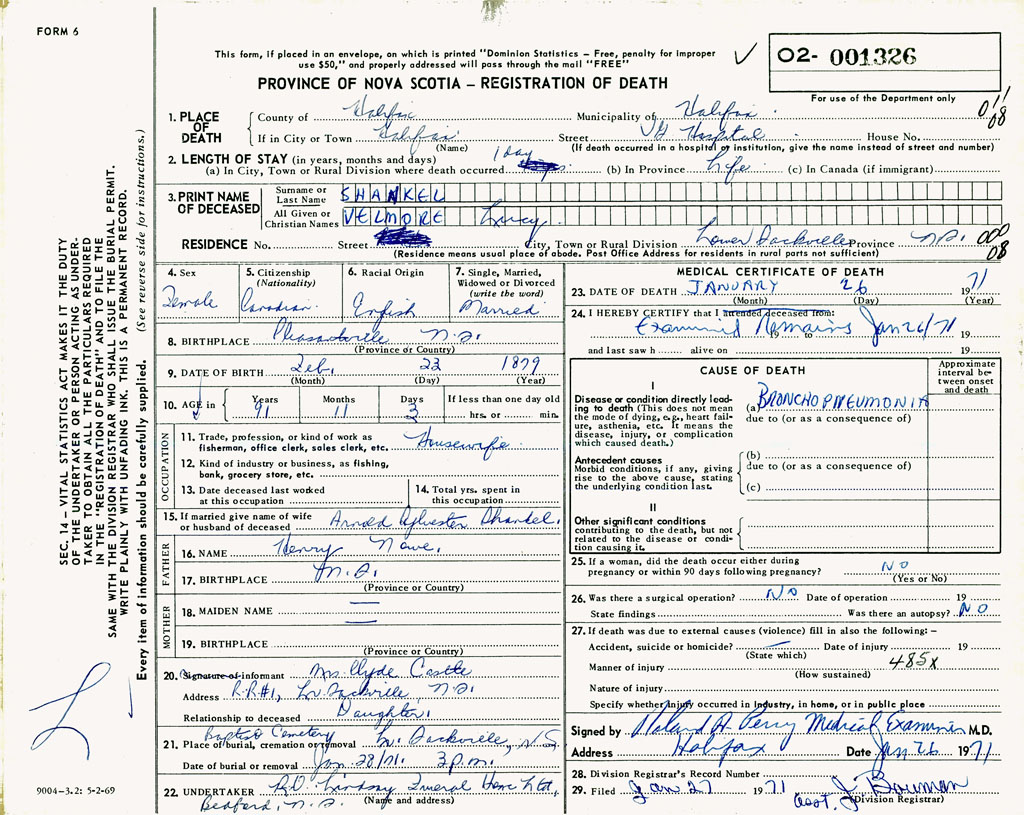 FORM 6
This form, if placed in an envelope, on which is printed "Dominion Statistics – Free, penalty for improper
use $50," and properly addressed will pass through the mail "FREE"
PROVINCE OF NOVA SCOTIA – REGISTRATION OF DEATH
02- 001326
For use of the Department only
SEC. 14 – VITAL STATISTICS ACT MAKES IT THE DUTY
OF THE UNDERTAKER OR PERSON ACTING AS UNDER-
TAKER TO OBTAIN ALL THE PARTICULARS REQUIRED
IN THE "REGISTRATION OF DEATH" AND TO FILE THE
SAME WITH THE DIVISION REGISTRAR WHO SHALL ISSUE THE BURIAL PERMIT.
WRITE PLAINLY WITH UNFADING INK. THIS IS A PERMANENT RECORD.
Every item of information should be carefully supplied. (See reverse side for instructions.)
1. PLACE OF DEATH
County of Halifax Municipality of Halifax 011 08
If in City or Town Halifax Street VG Hospital House No.
(Name) (If death occurred in a hospital or institution, give the name instead of street and number)
2. LENGTH OF STAY (in years, months and days)
(a) In City, Town or Rural Division where death occurred 1 day (b) In Province Life (c) In Canada (if immigrant)
3. PRINT NAME OF DECEASED
Surname or Last Name SHANKEL
All Given or Christian Names VELMORE Lucy
RESIDENCE No. Street City, Town or Rural Division Lower Sackville Province N.S. 000 08
(Residence means usual place of abode. Post Office Address for residents in rural parts not sufficient)
4. Sex Female
5. Citizenship (Nationality) Canadian
6. Racial Origin English
7. Single, Married, Widowed or Divorced (write the word) Married
8. BIRTHPLACE Pleasantville N.S.
(Province or Country)
9. DATE OF BIRTH Feb. 23 1879
(Month) (Day) (Year)
10. AGE in Years 91 Months 11 Days 3 If less than one day old hrs. or min.
OCCUPATION
11. Trade, profession, or kind of work as
fishermen, office clerk, sales clerk, etc. Housewife
12. Kind of industry or business, as fishing,
bank, grocery store, etc.
13. Date deceased last worked
at this occupation
14. Total yrs. spent in
this occupation
15. If married give name of wife
or husband of deceased Arnold Sylvester Shankel
FATHER
16. NAME Henry Nowe
17. BIRTHPLACE N.S.
(Province or Country)
MOTHER
18. MAIDEN NAME —
19. BIRTHPLACE —
(Province or Country)
20. Signature of informant Mrs. Clyde Castle
Address R.R#1, Lr. Sackville, N.S.
Relationship to deceased Daughter
Baptist Cemetery
21. Place of burial, cremation or removal Lr. Sackville, N.S.
Date of burial or removal Jan. 28/71. 3 p.m.
22. UNDERTAKER R.D. Lindsay Funeral Home Ltd,
Bedford, N.S. (Name and address)
9004-3.2: 5-2-69
MEDICAL CERTIFICATE OF DEATH
23. DATE OF DEATH JANUARY 26 1971
(Month) (Day) (Year)
24. I HEREBY CERTIFY that I attended deceased from:
Examined Remains Jan 26/71 19
19 to
and last saw h alive on 19
CAUSE OF DEATH
Approximate interval between onset and death
I
Disease or condition directly leading to death (This does not mean the mode of dying, e.g., heart failure, asthenia, etc. It means the disease, injury, or complication which caused death.)
(a) BRONCHOPNEUMONIA
due to (or as a consequence of)
Antecedent causes
Morbid conditions, if any, giving rise to the above cause, stating the underlying condition last.
(b)
due to (or as a consequence of)
(c)
II
Other significant conditions
contributing to the death, but not related to the disease or condition causing it.
25. If a woman, did the death occur either during
pregnancy or within 90 days following pregnancy? NO
(Yes or No)
26. Was there a surgical operation? NO Date of operation 19
State findings Was there an autopsy? NO
27. If death was due to external causes (violence) fill in also the following: –
Accident, suicide or homicide? — Date of injury 19
(State which)
Manner of injury 485X
(How sustained)
Nature of injury
Specify whether injury occurred in industry, in home, or in public place
Signed by Roland H. Perry Medical Examiner M.D.
Address Halifax Date Jan 26 1971
28. Division Registrar's Record Number
29. Filed Jan 27 1971 Asst. J. Bowman
(Division Registrar)